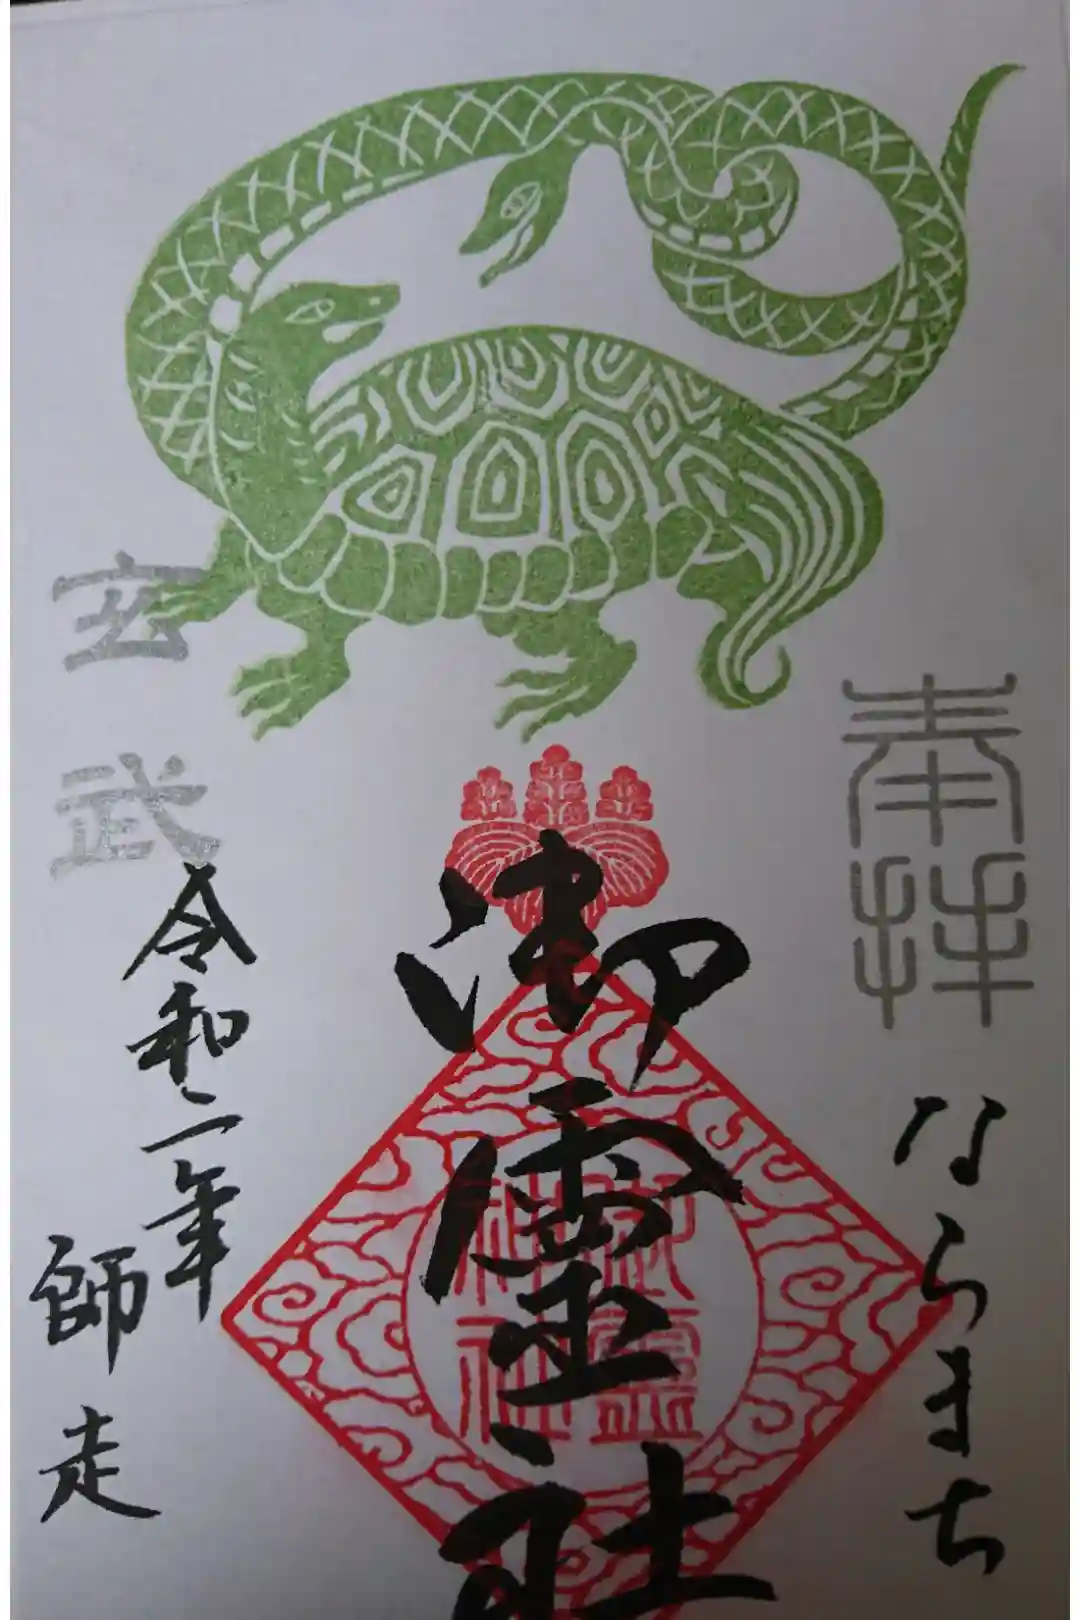 奉拝
ならまち
御霊社
御霊神社
令和二年
師走
玄武